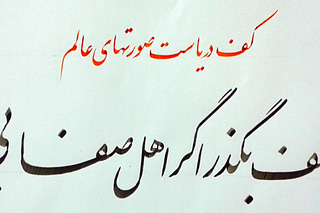 کف دریاست صورتهای عالم
ف بگذر اگر اهل صفایی